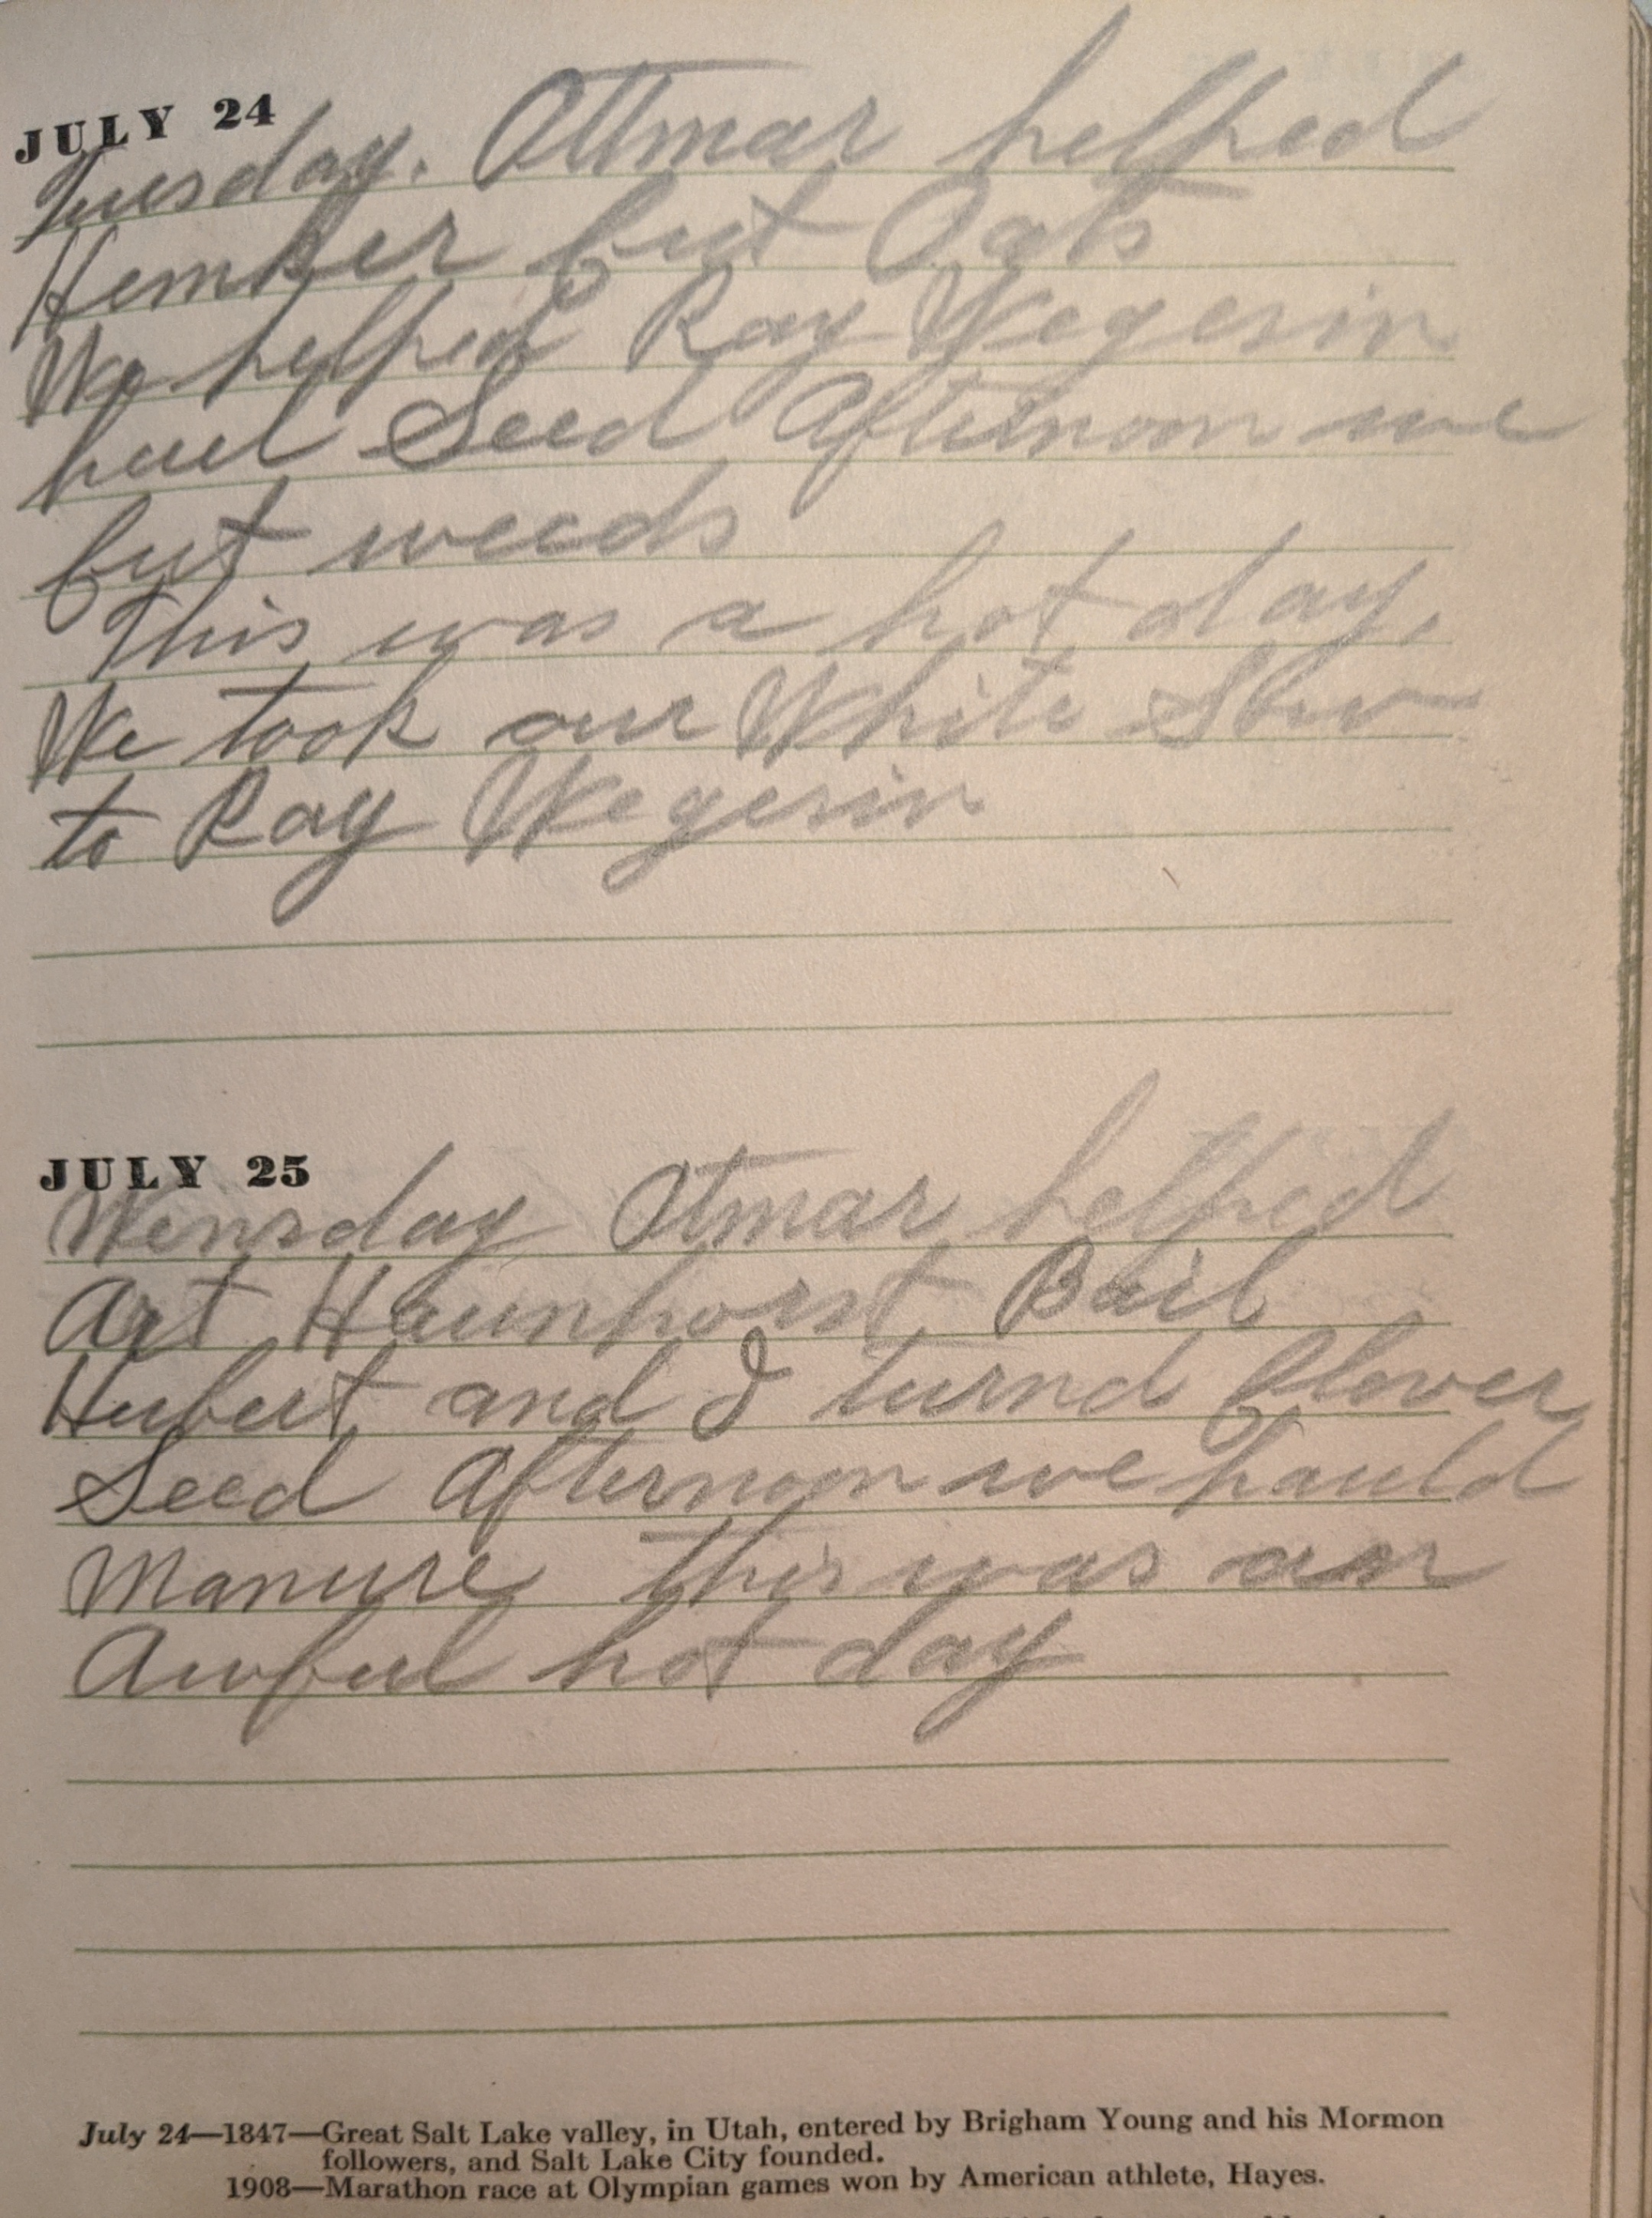 JULY 24
Tuesday. Ottmar helped
Hemker but Oats
We helped Ray Wegesin
huel Seed Afternoon we
but weeds
This was a hot day,
We took our White Sow
to Ray Wegesin
JULY 25
Wensday Otmar helped
Art Haunhorst Bail
Hubert and I turnd Clover
Seed Afternoon we hauld
Manure this was an
Awful hot day
July 24—1847—Great Salt Lake valley, in Utah, entered by Brigham Young and his Mormon
followers, and Salt Lake City founded.
1908—Marathon race at Olympian games won by American athlete, Hayes.